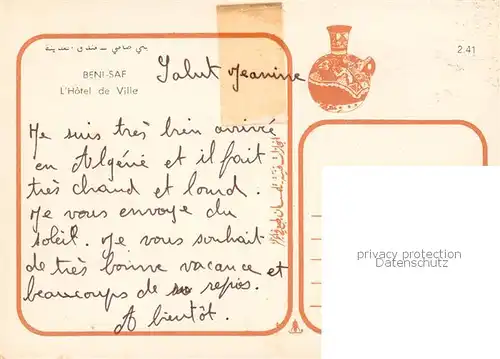 بني صاف - فندق المدينة
BENI-SAF
L'Hôtel de Ville
2.41
Salut Jeanine
Je suis très bien arrivée
en Algérie et il fait
très chaud et lourd.
Je vous envoye du
soleil. Je vous souhait
de très bonne vacance et
beaucoups de repos.
A bientôt.
privacy protection
Datenschutz